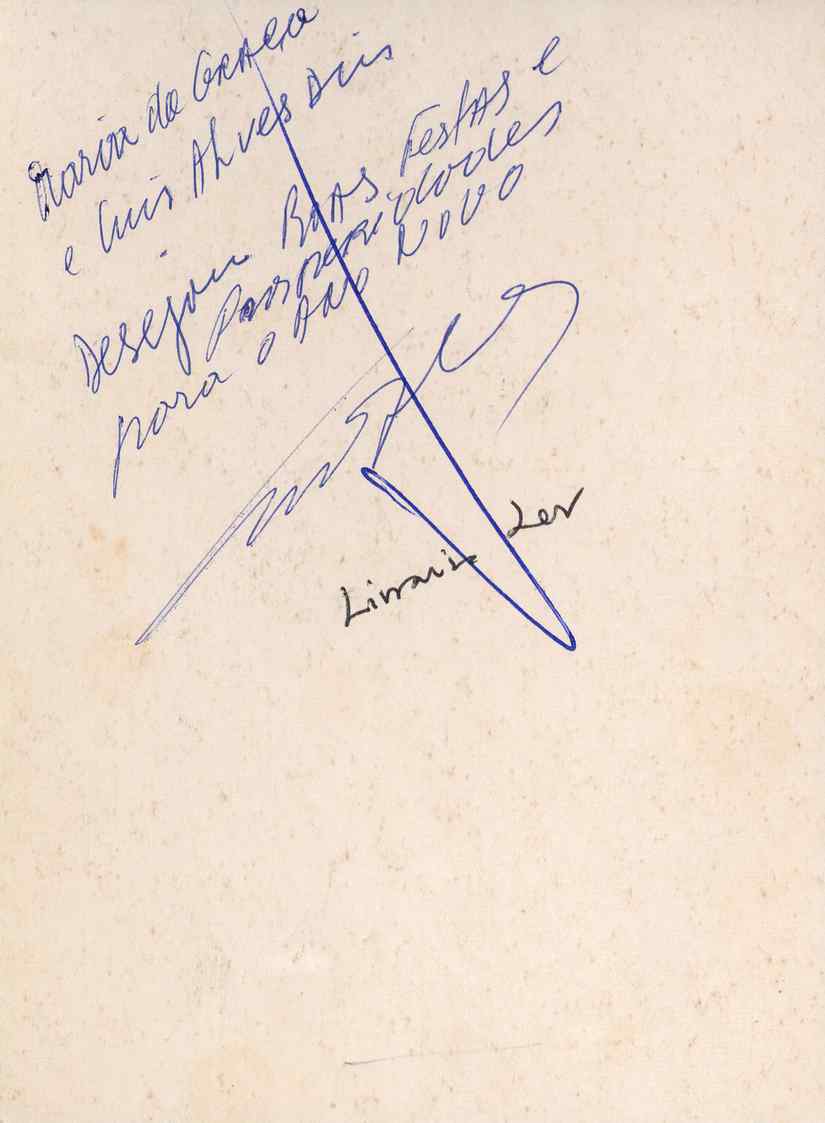 Maria da Graça
e Luis Alves Dias
Desejam Boas Festas e
Prosperidades
para o Ano Novo
Livraria Ler